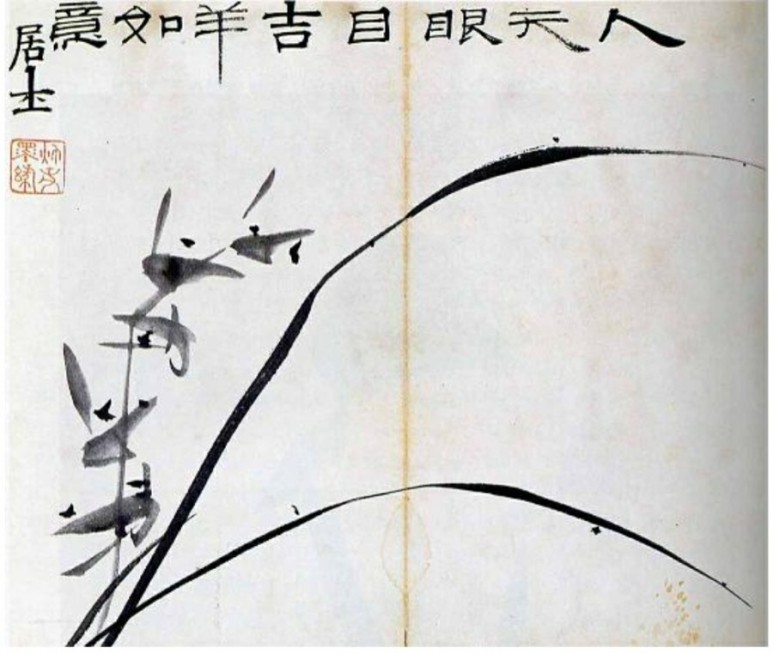 人天眼目吉羊如意
居士